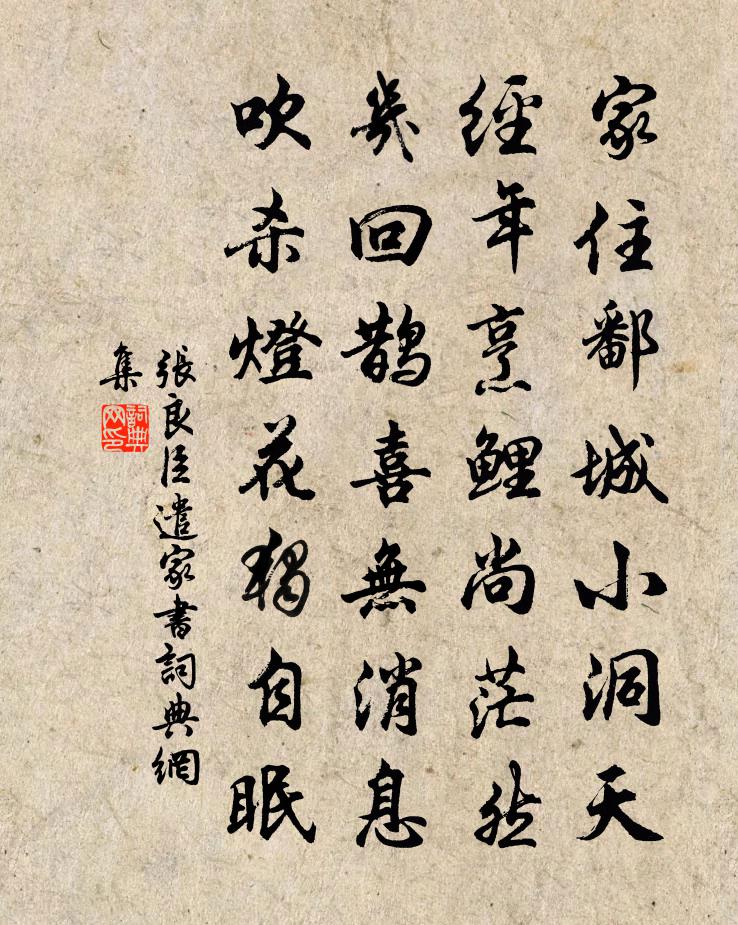 家住鄱城小洞天
經年烹鯉尚茫然
幾回鵲喜無消息
吹杀燈花獨自眠
張良臣遣家書詞典網
集
詞典
网印